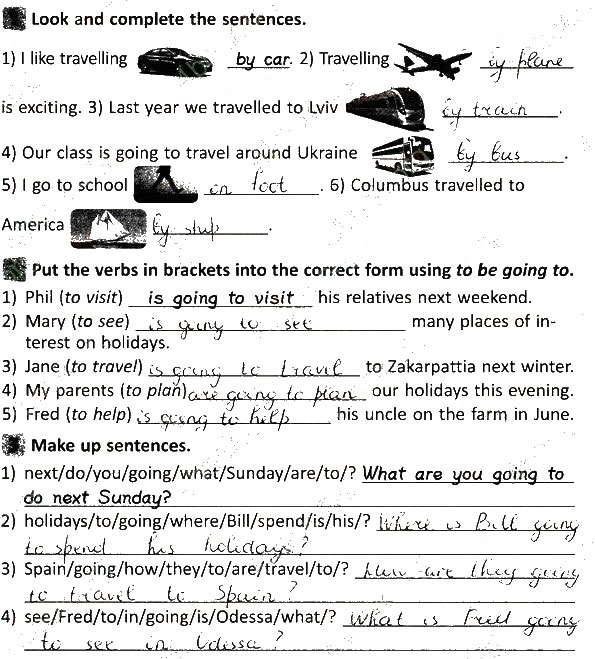 Look and complete the sentences.
1) I like travelling by car. 2) Travelling by plane
is exciting. 3) Last year we travelled to Lviv by train.
4) Our class is going to travel around Ukraine by bus.
5) I go to school on foot. 6) Columbus travelled to
America by ship.
Put the verbs in brackets into the correct form using to be going to.
1) Phil (to visit) is going to visit his relatives next weekend.
2) Mary (to see) is going to see many places of in-
terest on holidays.
3) Jane (to travel) is going to travel to Zakarpattia next winter.
4) My parents (to plan) are going to plan our holidays this evening.
5) Fred (to help) is going to help his uncle on the farm in June.
Make up sentences.
1) next/do/you/going/what/Sunday/are/to/? What are you going to
do next Sunday?
2) holidays/to/going/where/Bill/spend/is/his/? Where is Bill going
to spend his holidays?
3) Spain/going/how/they/to/are/travel/to/? How are they going
to travel to Spain?
4) see/Fred/to/in/going/is/Odessa/what/? What is Fred going
to see in Odessa?